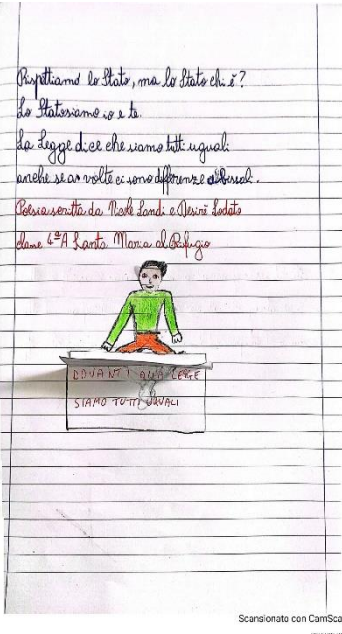 Rispettiamo lo Stato, ma lo Stato chi è?
Lo Stato siamo io e te.
La Legge dice che siamo tutti uguali
anche se a volte ci sono differenze abissali.
Poesia scritta da Nicole Landi e Desirè Lodato
classe 4ªA Santa Maria al Rifugio
DAVANTI ALLA LEGGE
SIAMO TUTTI UGUALI
Scansionato con CamSca